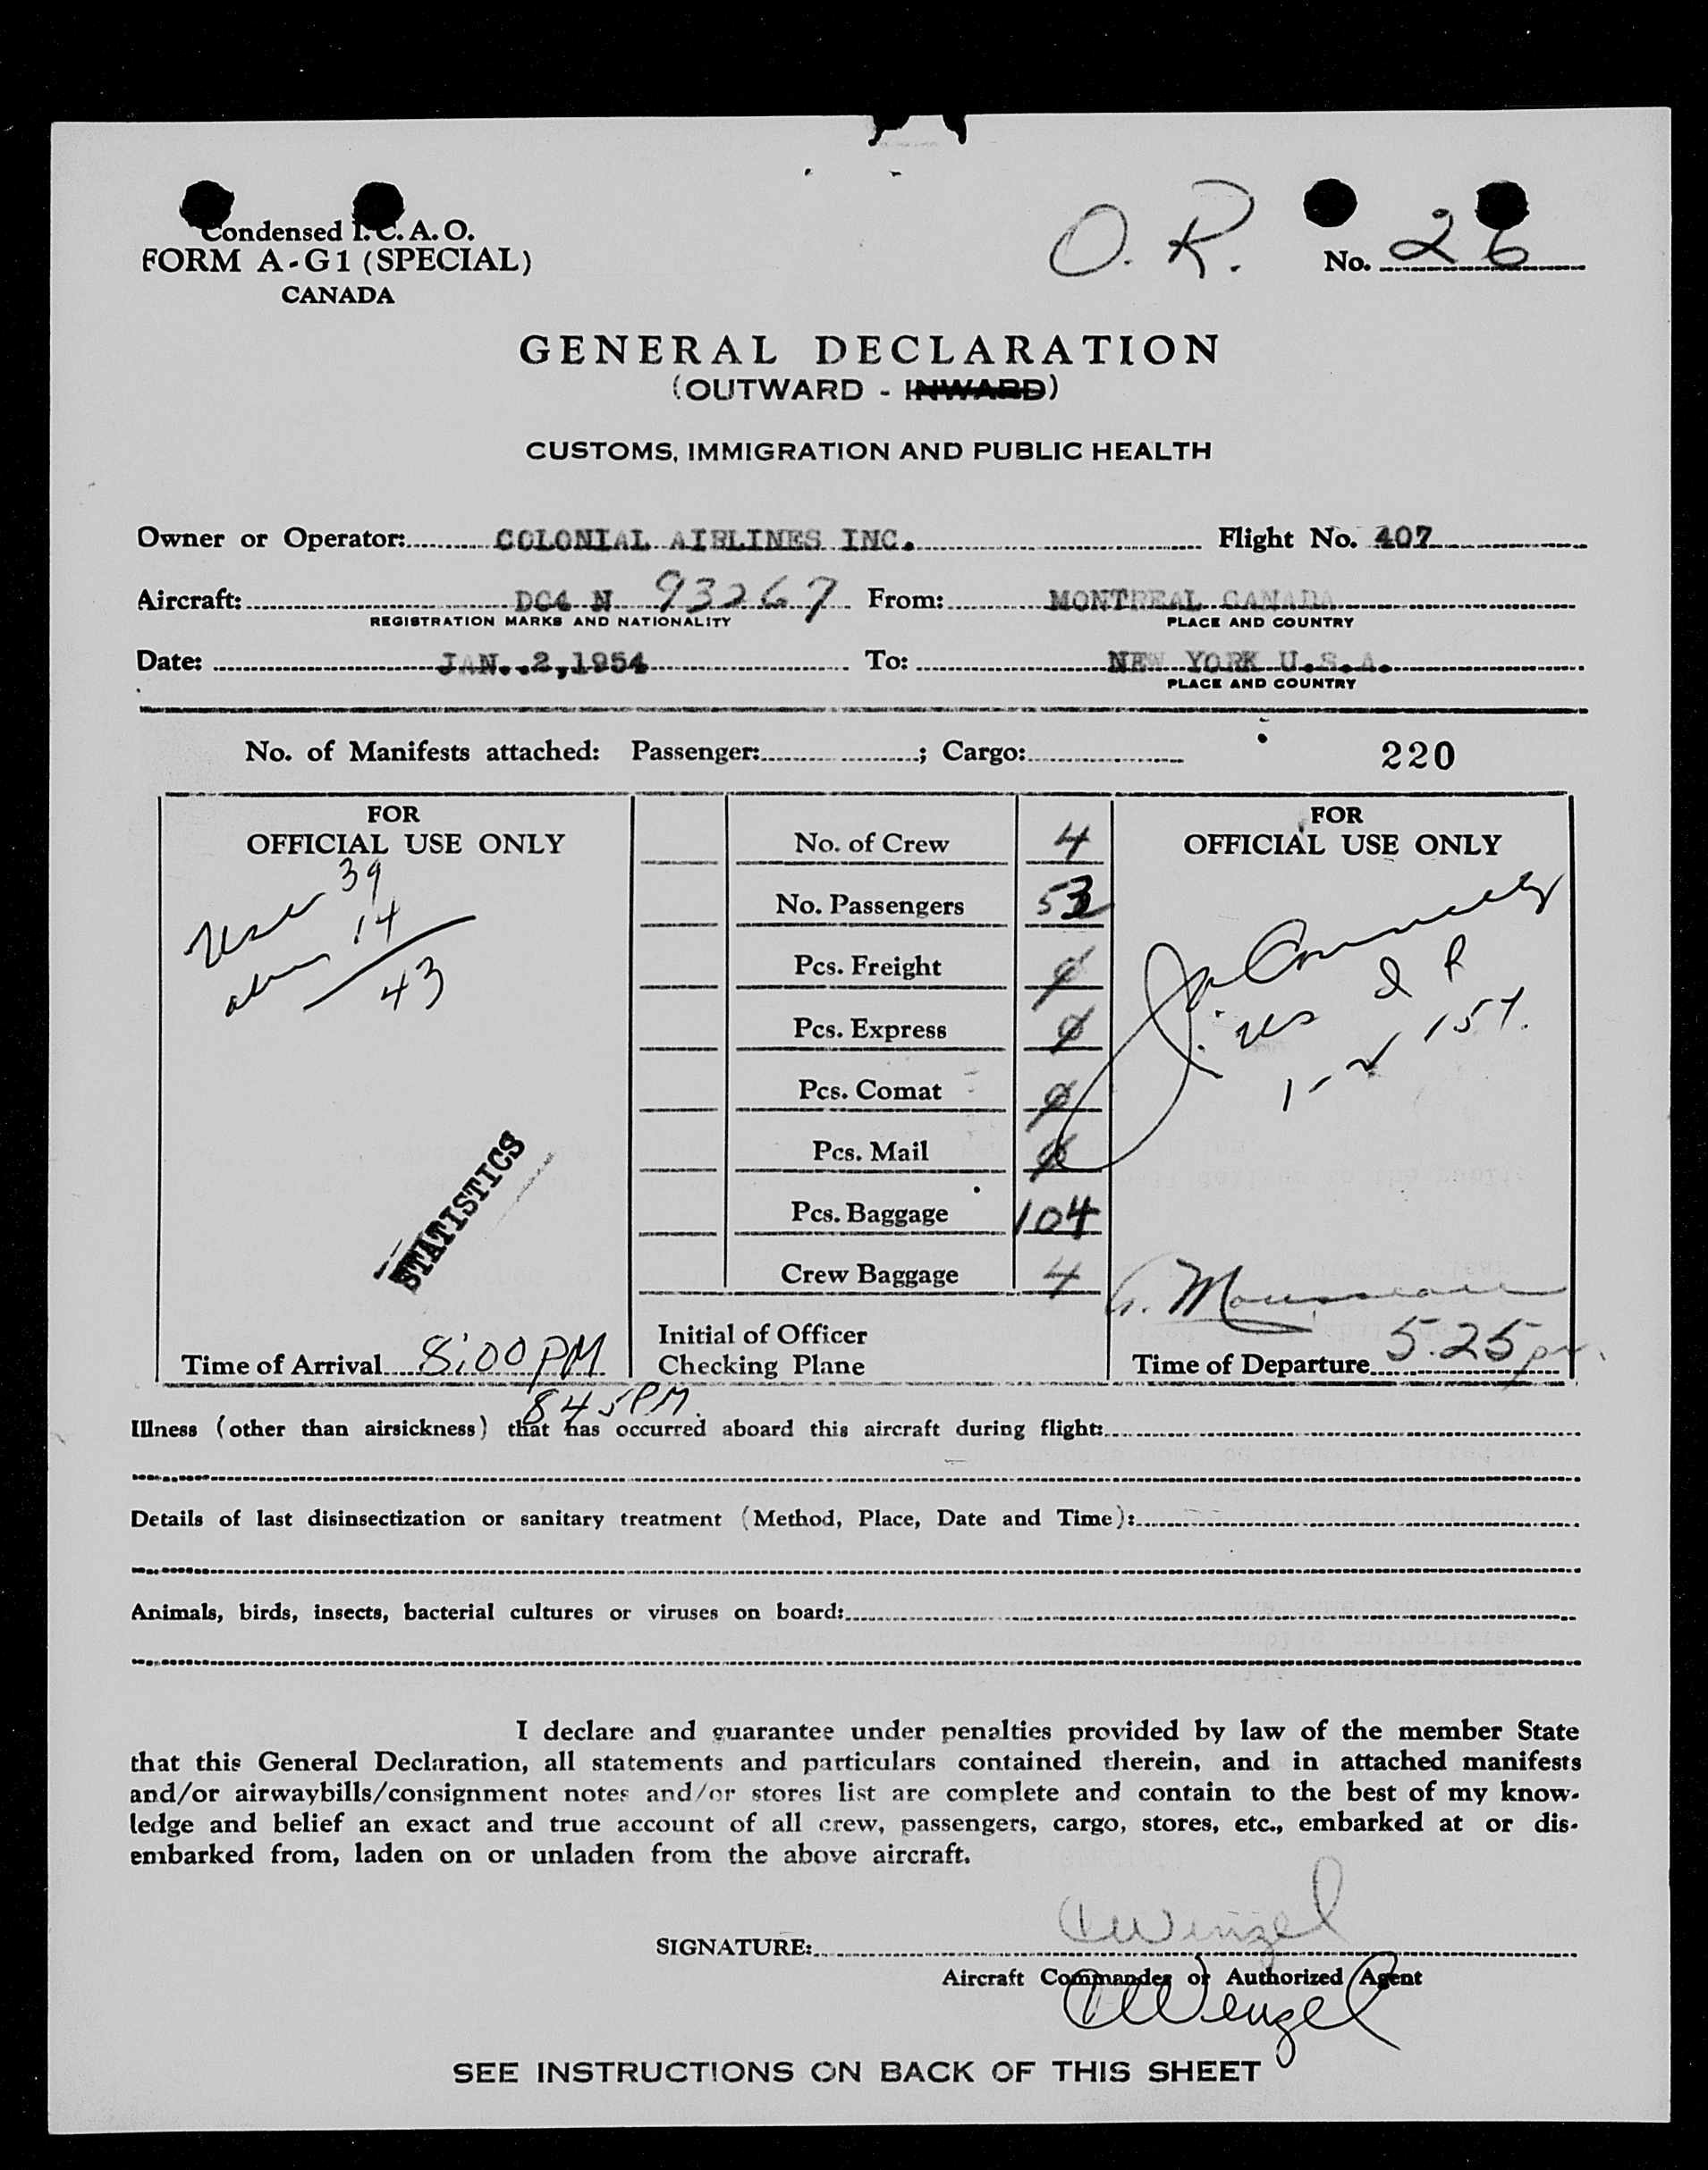 Condensed I.C.A.O.
FORM A-G1 (SPECIAL)
CANADA
O. R.
No. 26
GENERAL DECLARATION
(OUTWARD - INWARD)
CUSTOMS, IMMIGRATION AND PUBLIC HEALTH
Owner or Operator: COLONIAL AIRLINES INC. Flight No. 407
Aircraft: DC4 N 93267 From: MONTREAL CANADA
REGISTRATION MARKS AND NATIONALITY PLACE AND COUNTRY
Date: JAN. 2,1954 To: NEW YORK U.S.A.
PLACE AND COUNTRY
No. of Manifests attached: Passenger: ; Cargo:
220
FOR
OFFICIAL USE ONLY
39
14
43
STATISTICS
Time of Arrival 8:00 PM
845 PM
No. of Crew 4
No. Passengers 53
Pcs. Freight
Pcs. Express
Pcs. Comat
Pcs. Mail
Pcs. Baggage 104
Crew Baggage 4
Initial of Officer
Checking Plane
FOR
OFFICIAL USE ONLY
Time of Departure 5.25 pm
Illness (other than airsickness) that has occurred aboard this aircraft during flight:
Details of last disinsectization or sanitary treatment (Method, Place, Date and Time):
Animals, birds, insects, bacterial cultures or viruses on board:
I declare and guarantee under penalties provided by law of the member State
that this General Declaration, all statements and particulars contained therein, and in attached manifests
and/or airwaybills/consignment notes and/or stores list are complete and contain to the best of my know-
ledge and belief an exact and true account of all crew, passengers, cargo, stores, etc., embarked at or dis-
embarked from, laden on or unladen from the above aircraft.
SIGNATURE:
Aircraft Commander or Authorized Agent
Wenzel
SEE INSTRUCTIONS ON BACK OF THIS SHEET